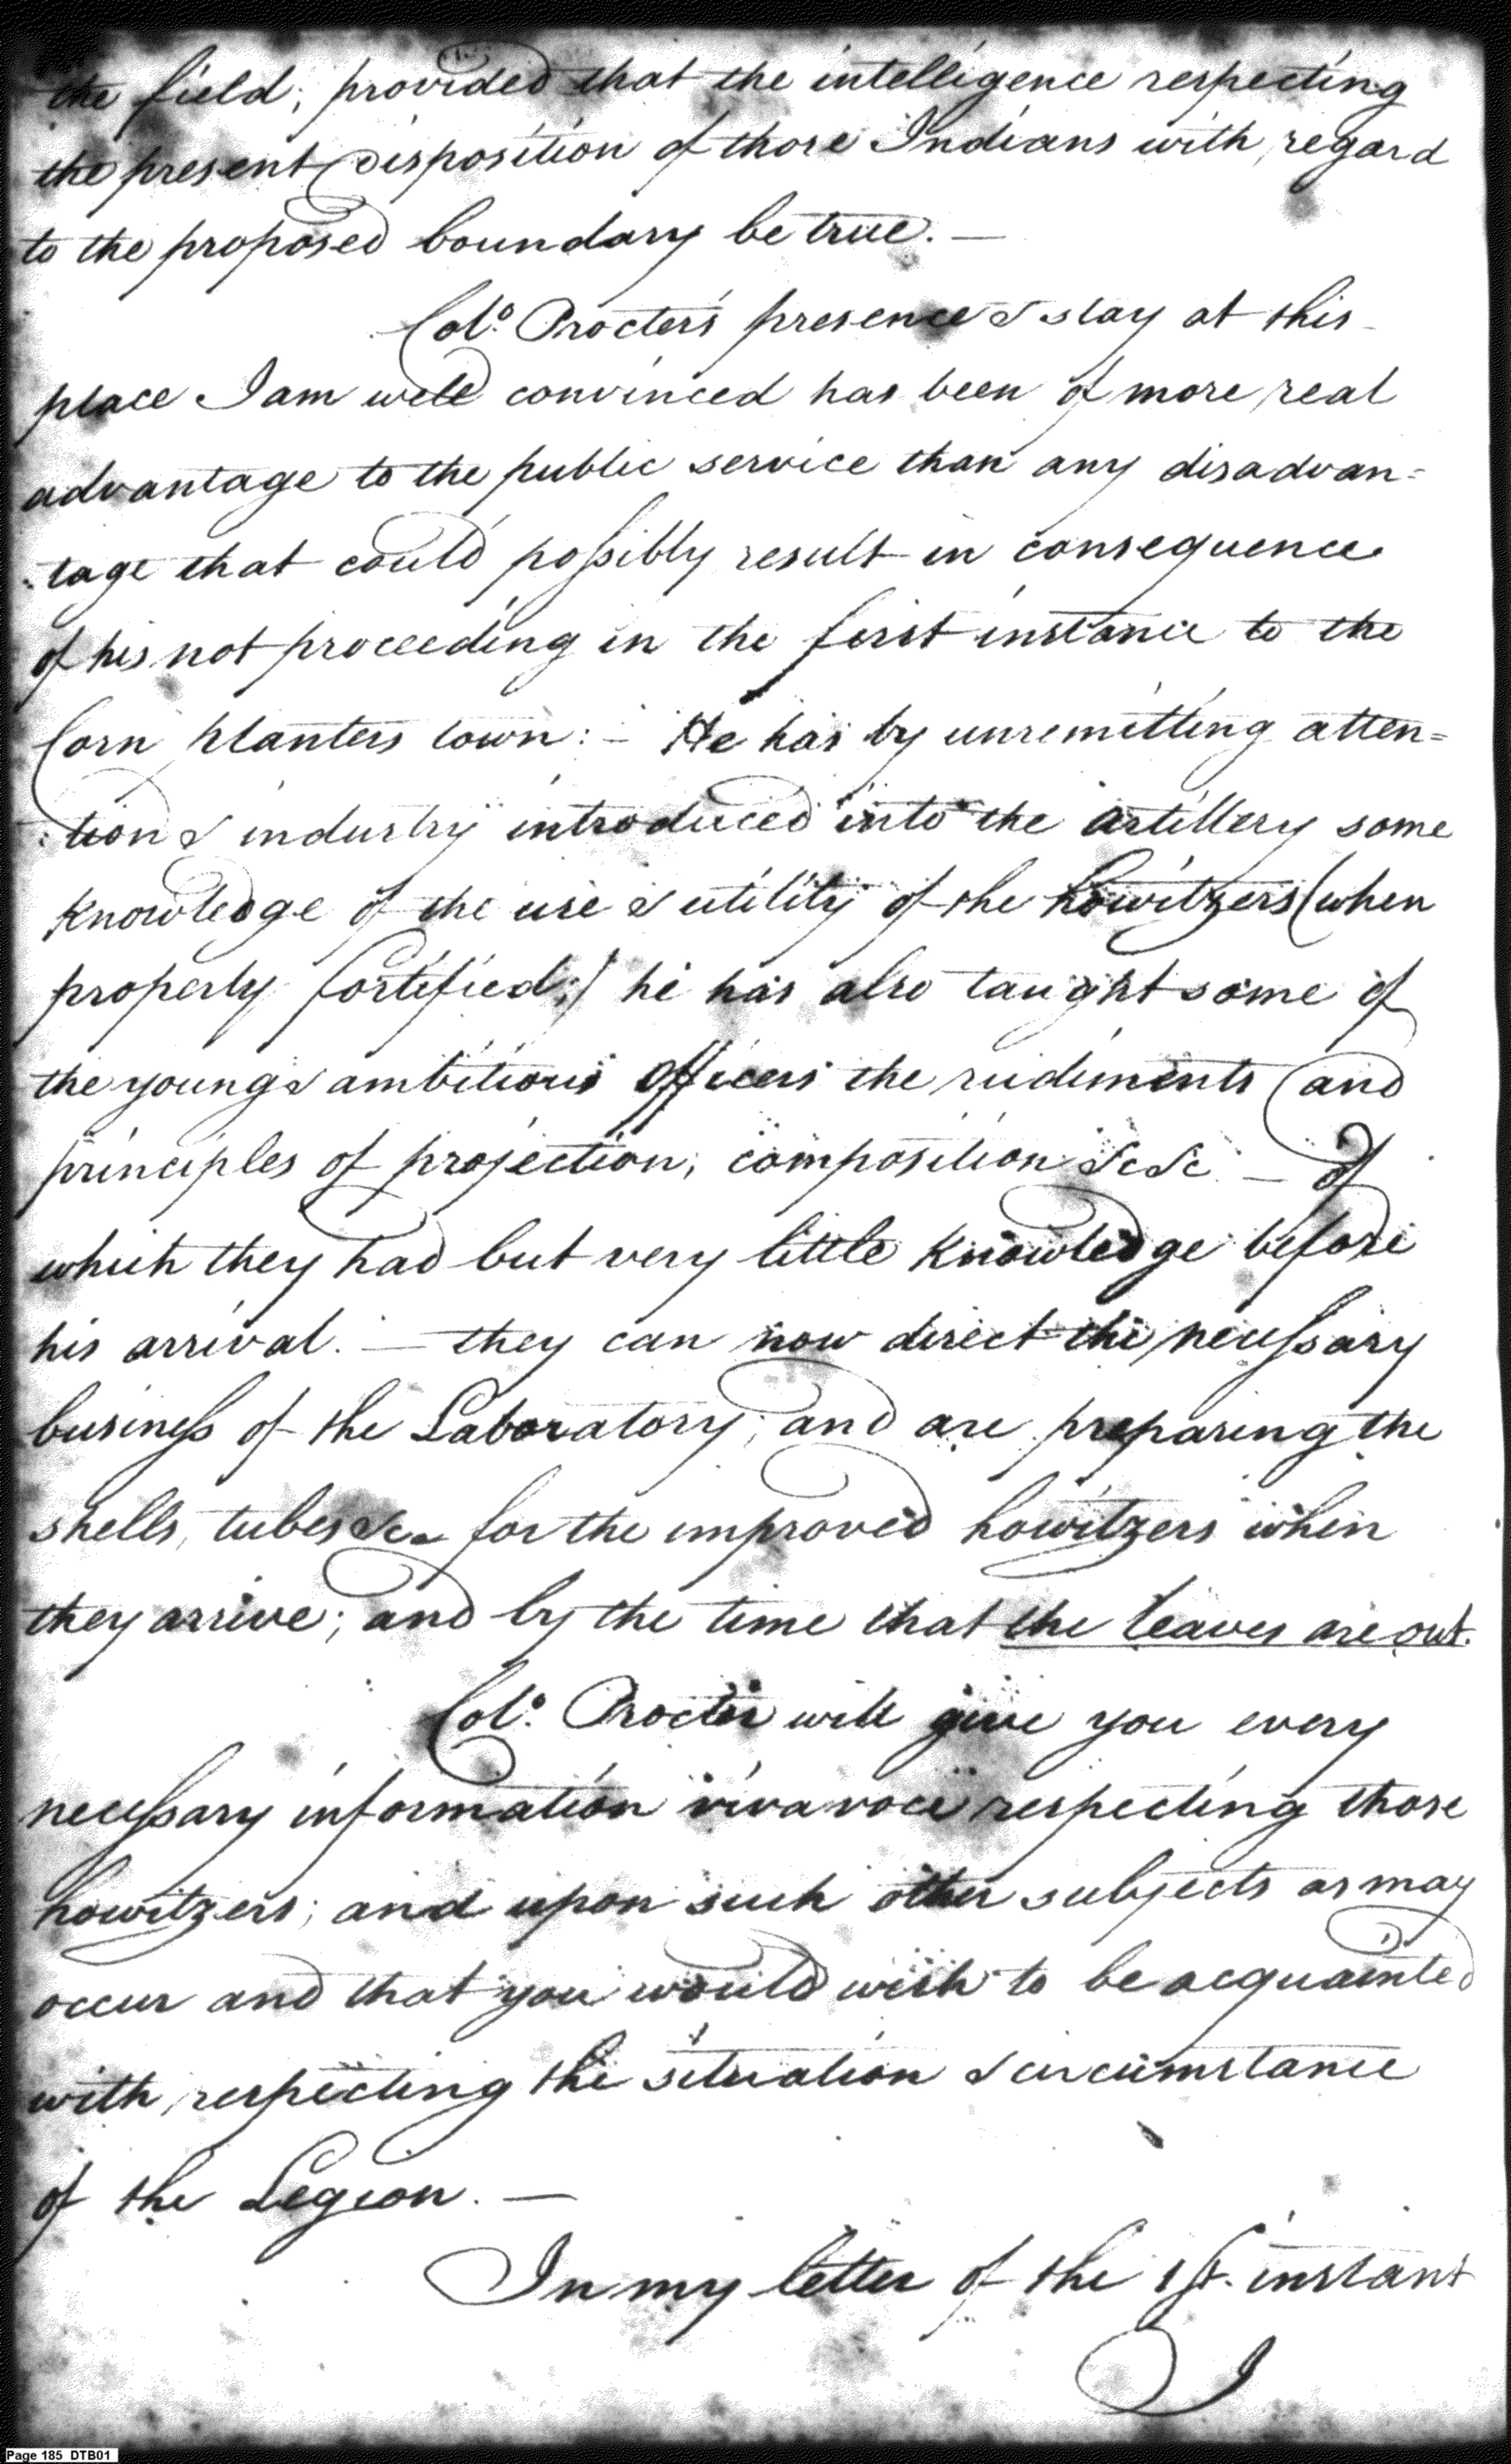 the field; provided that the intelligence respecting
the present disposition of those Indians with regard
to the proposed boundary be true. —
Colo. Procters presence & stay at this
place I am well convinced has been of more real
advantage to the public service than any disadvan=
:tage that could possibly result in consequence
of his not proceeding in the first instance to the
Corn planters town: – He has by unremitting atten=
:tion & industry introduced into the artillery some
knowledge of the use & utility of the howitzers (when
properly fortified;) he has also taught some of
the young & ambitious officers the rudiments and
principles of projection, composition &c &c — of
which they had but very little knowledge before
his arrival. — they can now direct the necessary
business of the Laboratory; and are preparing the
shells, tubes &c for the improved howitzers when
they arrive; and by the time that the leaves are out.
Colo. Procter will give you every
necessary information viva voce respecting those
howitzers; and upon such other subjects as may
occur and that you would wish to be acquainted
with, respecting the situation & circumstance
of the Legion. —
In my letter of the 1st. instant
I
Page 185 DTB01